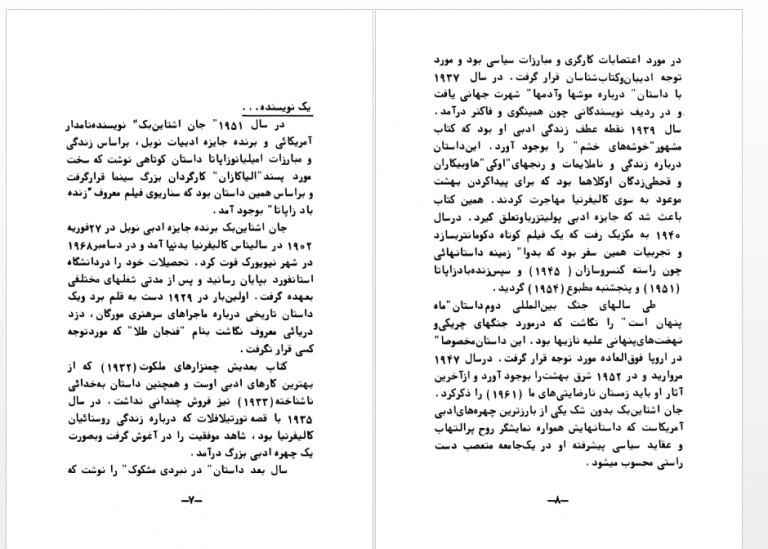 یک نویسنده...
در سال ۱۹۵۱" جان اشتاین‌بک" نویسنده‌نامدار
آمریکائی و برنده جایزه ادبیات نوبل، براساس زندگی
و مبارزات امیلیانوزاپاتا داستان کوتاهی نوشت که سخت
مورد پسند"الیاکازان" کارگردان بزرگ سینما قرارگرفت
و براساس همین داستان بود که سناریوی فیلم معروف "زنده
باد زاپاتا" بوجود آمد.
جان اشتاین‌بک برنده جایزه ادبی نوبل در ۲۷فوریه
۱۹۰۲ در سالیناس کالیفرنیا بدنیا آمد و در دسامبر۱۹۶۸
در شهر نیویورک فوت کرد. تحصیلات خود را دردانشگاه
استانفورد بپایان رسانید و پس از مدتی شغلهای مختلفی
بعهده گرفت. اولین‌بار در ۱۹۲۹ دست به قلم برد ویک
داستان تاریخی درباره ماجراهای سرهنری مورگان، دزد
دریائی معروف نگاشت بنام "فنجان طلا" که موردتوجه
کسی قرار نگرفت.
کتاب بعدیش چمنزارهای ملکوت(۱۹۳۲) که از
بهترین کارهای ادبی اوست و همچنین داستان به‌خدائی
ناشناخته(۱۹۳۳) نیز فروش چندانی نداشت. در سال
۱۹۳۵ با قصه تورتیلافلات که درباره زندگی روستائیان
کالیفرنیا بود، شاهد موفقیت را در آغوش گرفت وبصورت
یک چهره ادبی بزرگ درآمد.
سال بعد داستان" در نبردی مشکوک" را نوشت که
—۷—
در مورد اعتصابات کارگری و مبارزات سیاسی بود و مورد
توجه ادیبان‌وکتاب‌شناسان قرار گرفت. در سال ۱۹۳۷
با داستان" درباره موشها وآدمها" شهرت جهانی یافت
و در ردیف نویسندگانی چون همینگوی و فاکنر درآمد.
سال ۱۹۳۹ نقطه عطف زندگی ادبی او بود که کتاب
مشهور"خوشه‌های خشم" را بوجود آورد. این‌داستان
درباره زندگی و ناملایمات و رنجهای"اوکی"هاوبیکاران
و قحطی‌زدگان اوکلاهما بود که برای پیداکردن بهشت
موعود به سوی کالیفرنیا مهاجرت کردند. همین کتاب
باعث شد که جایزه ادبی پولیتزرباوتعلق گیرد. درسال
۱۹۴۰ به مکزیک رفت که یک فیلم کوتاه دکومانتربسازد
و تجربیات همین سفر بود که بدوا" زمینه داستانهائی
چون راسته کنسروسازان ( ۱۹۴۵) و سپس‌زنده‌بادزاپاتا
(۱۹۵۱) و پنجشنبه مطبوع (۱۹۵۴) گردید.
طی سالهای جنگ بین‌المللی دوم‌داستان"ماه
پنهان است" را نگاشت که درمورد جنگهای چریکی‌و
نهضت‌های‌پنهانی علیه نازیها بود. این داستان‌مخصوصا"
در اروپا فوق‌العاده مورد توجه قرار گرفت. درسال ۱۹۴۷
مروارید و در ۱۹۵۲ شرق بهشت‌را بوجود آورد و ازآخرین
آثار او باید زمستان نارضایتی‌های ما (۱۹۶۱) را ذکرکرد.
جان اشتاین‌بک بدون شک یکی از بارزترین چهره‌های‌ادبی
آمریکاست که داستانهایش همواره نمایشگر روح پرالتهاب
و عقاید سیاسی پیشرفته او در یک‌جامعه متعصب دست
راستی محسوب میشود.
—۸—